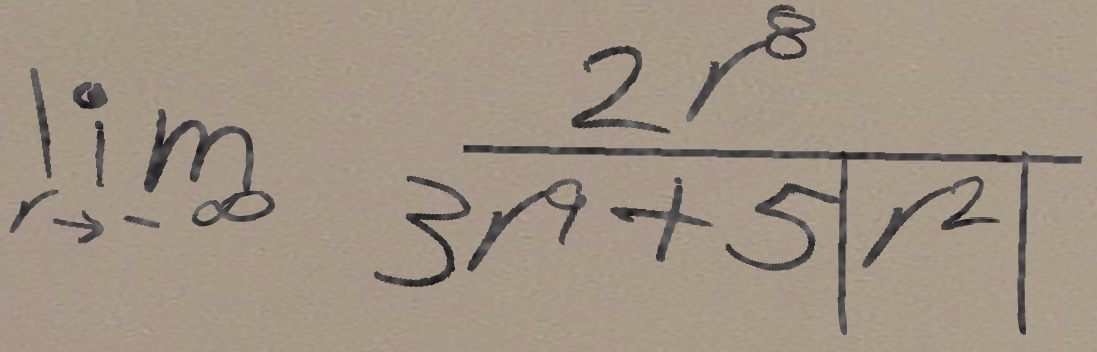 \lim_{r \to -\infty} \frac{2r^8}{3r^9 + 5|r^2|}